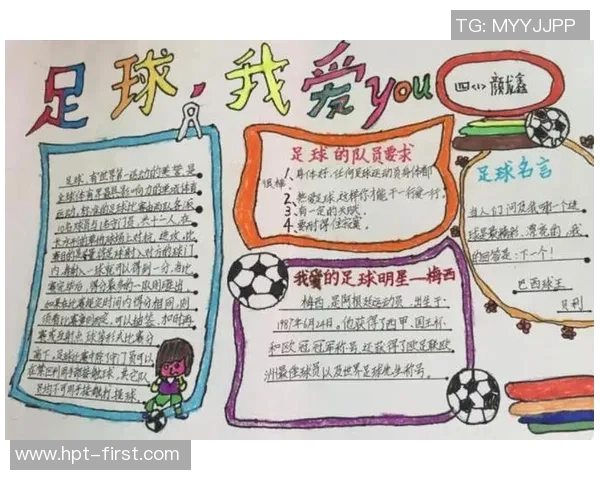 TG: MYYJJPP
足球,我爱you
四(1) 颜鑫
足球,有"世界第一运动"的美誉,是
全球体育界最具影响力的单项体育
运动,标准的足球比赛由两队各派
10名球员与1名守门员,共十一人,在
长方形的草地球场上对抗、进攻,比
赛目的是尽量将足球射入对方的球门
内,每射入一球就可以得到一分,当比
赛完毕后,得分最多的一队则胜出,
如果在比赛规定时间内得分相同,则
须看比赛章则而定,可以抽签、加时再
赛或互射点球等形式比赛分
高下,足球比赛中除了守门员可以
在禁区利用手部接触足球,其它队
员均不可用手接触打球
足球的队员要求
1、身体好,任何足球运动员身体都
很棒
2、热爱足球,这样你才能干一行爱一行。
3、有一定的天赋。
4、要耐得住寂寞
我爱的足球明星—梅西
梅西,是阿根廷运动员,出生于
1987年6月24日,他获得了西甲、国王杯
和欧冠冠军称号,还获得了欧足联欧
洲最佳球员以及世界足球先生称号。
足球名言
当人们问及我哪一个进
球是最精彩、漂亮的,我
的回答是:下一个!
巴西球王
贝利
www.hpt-first.com